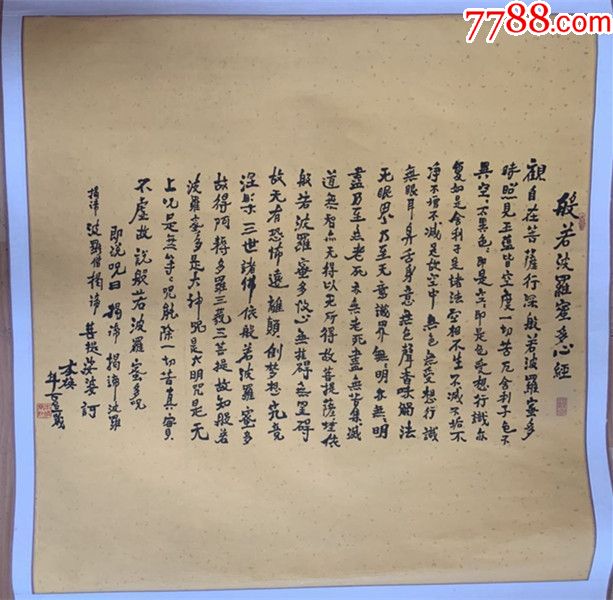 7788.com
般若波羅蜜多心經
觀自在菩薩行深般若波羅蜜多
時照見五蘊皆空度一切苦厄舍利子色不
異空空不異色色即是空空即是色受想行識亦
復如是舍利子是諸法空相不生不滅不垢不
淨不增不減是故空中無色無受想行識
無眼耳鼻舌身意無色聲香味觸法
无眼界乃至无意識界無無明亦無無明
盡乃至無老死亦無老死盡無苦集滅
道無智亦无得以无所得故菩提薩埵依
般若波羅蜜多故心無挂碍無罣碍
故无有恐怖遠離顛倒夢想究竟
涅槃三世諸佛依般若波羅蜜多
故得阿耨多羅三藐三菩提故知般若
波羅蜜多是大神咒是大明咒是无
上咒是無等等咒能除一切苦真實
不虛故說般若波羅蜜多咒
即說咒曰揭諦揭諦波羅
揭諦波羅僧揭諦菩提娑婆訶